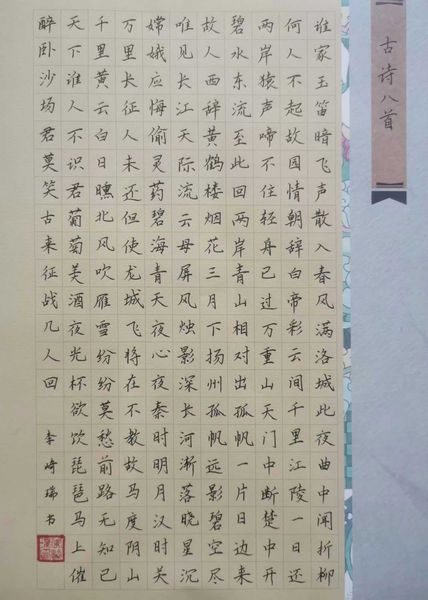 古诗八首
谁家玉笛暗飞声散入春风满洛城此夜曲中闻折柳
何人不起故园情朝辞白帝彩云间千里江陵一日还
两岸猿声啼不住轻舟已过万重山天门中断楚中开
碧水东流至此回两岸青山相对出孤帆一片日边来
故人西辞黄鹤楼烟花三月下扬州孤帆远影碧空尽
唯见长江天际流云母屏风烛影深长河渐落晓星沉
嫦娥应悔偷灵药碧海青天夜心夜秦时明月汉时关
万里长征人未还但使龙城飞将在不教故马度阴山
千里黄云白日曛北风吹雁雪纷纷莫愁前路无知己
天下谁人不识君葡萄美酒夜光杯欲饮琵琶马上催
醉卧沙场君莫笑古来征战几人回
李崎瑞书